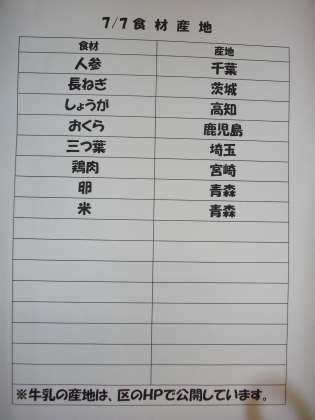 7/7食材産地
食材 産地
人参 千葉
長ねぎ 茨城
しょうが 高知
おくら 鹿児島
三つ葉 埼玉
鶏肉 宮崎
卵 青森
米 青森
※牛乳の産地は、区のHPで公開しています。